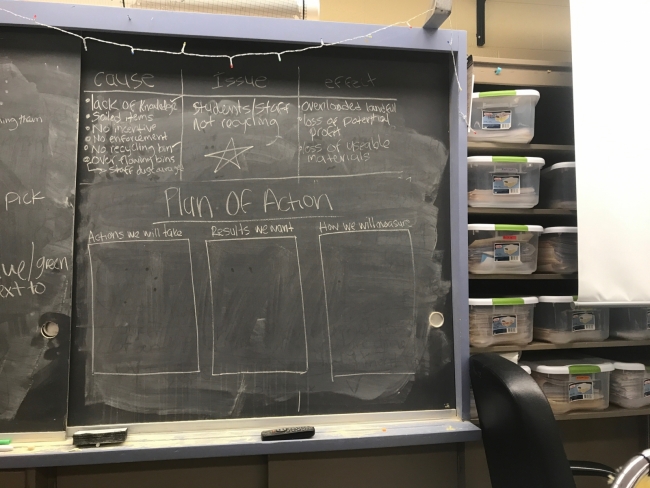 ning them
PICK
ue/green
ext to
cause
Issue
effect
• lack of knowledge
• Soiled items
• No incentive
• No enforcement
• No recycling bins
• Overflowing bins
↳ staff
Students/staff
not recycling
• Overloaded landfill
• loss of potential
profit
• loss of useable
materials
Plan Of Action
Actions we will take
Results we want
How we will measure